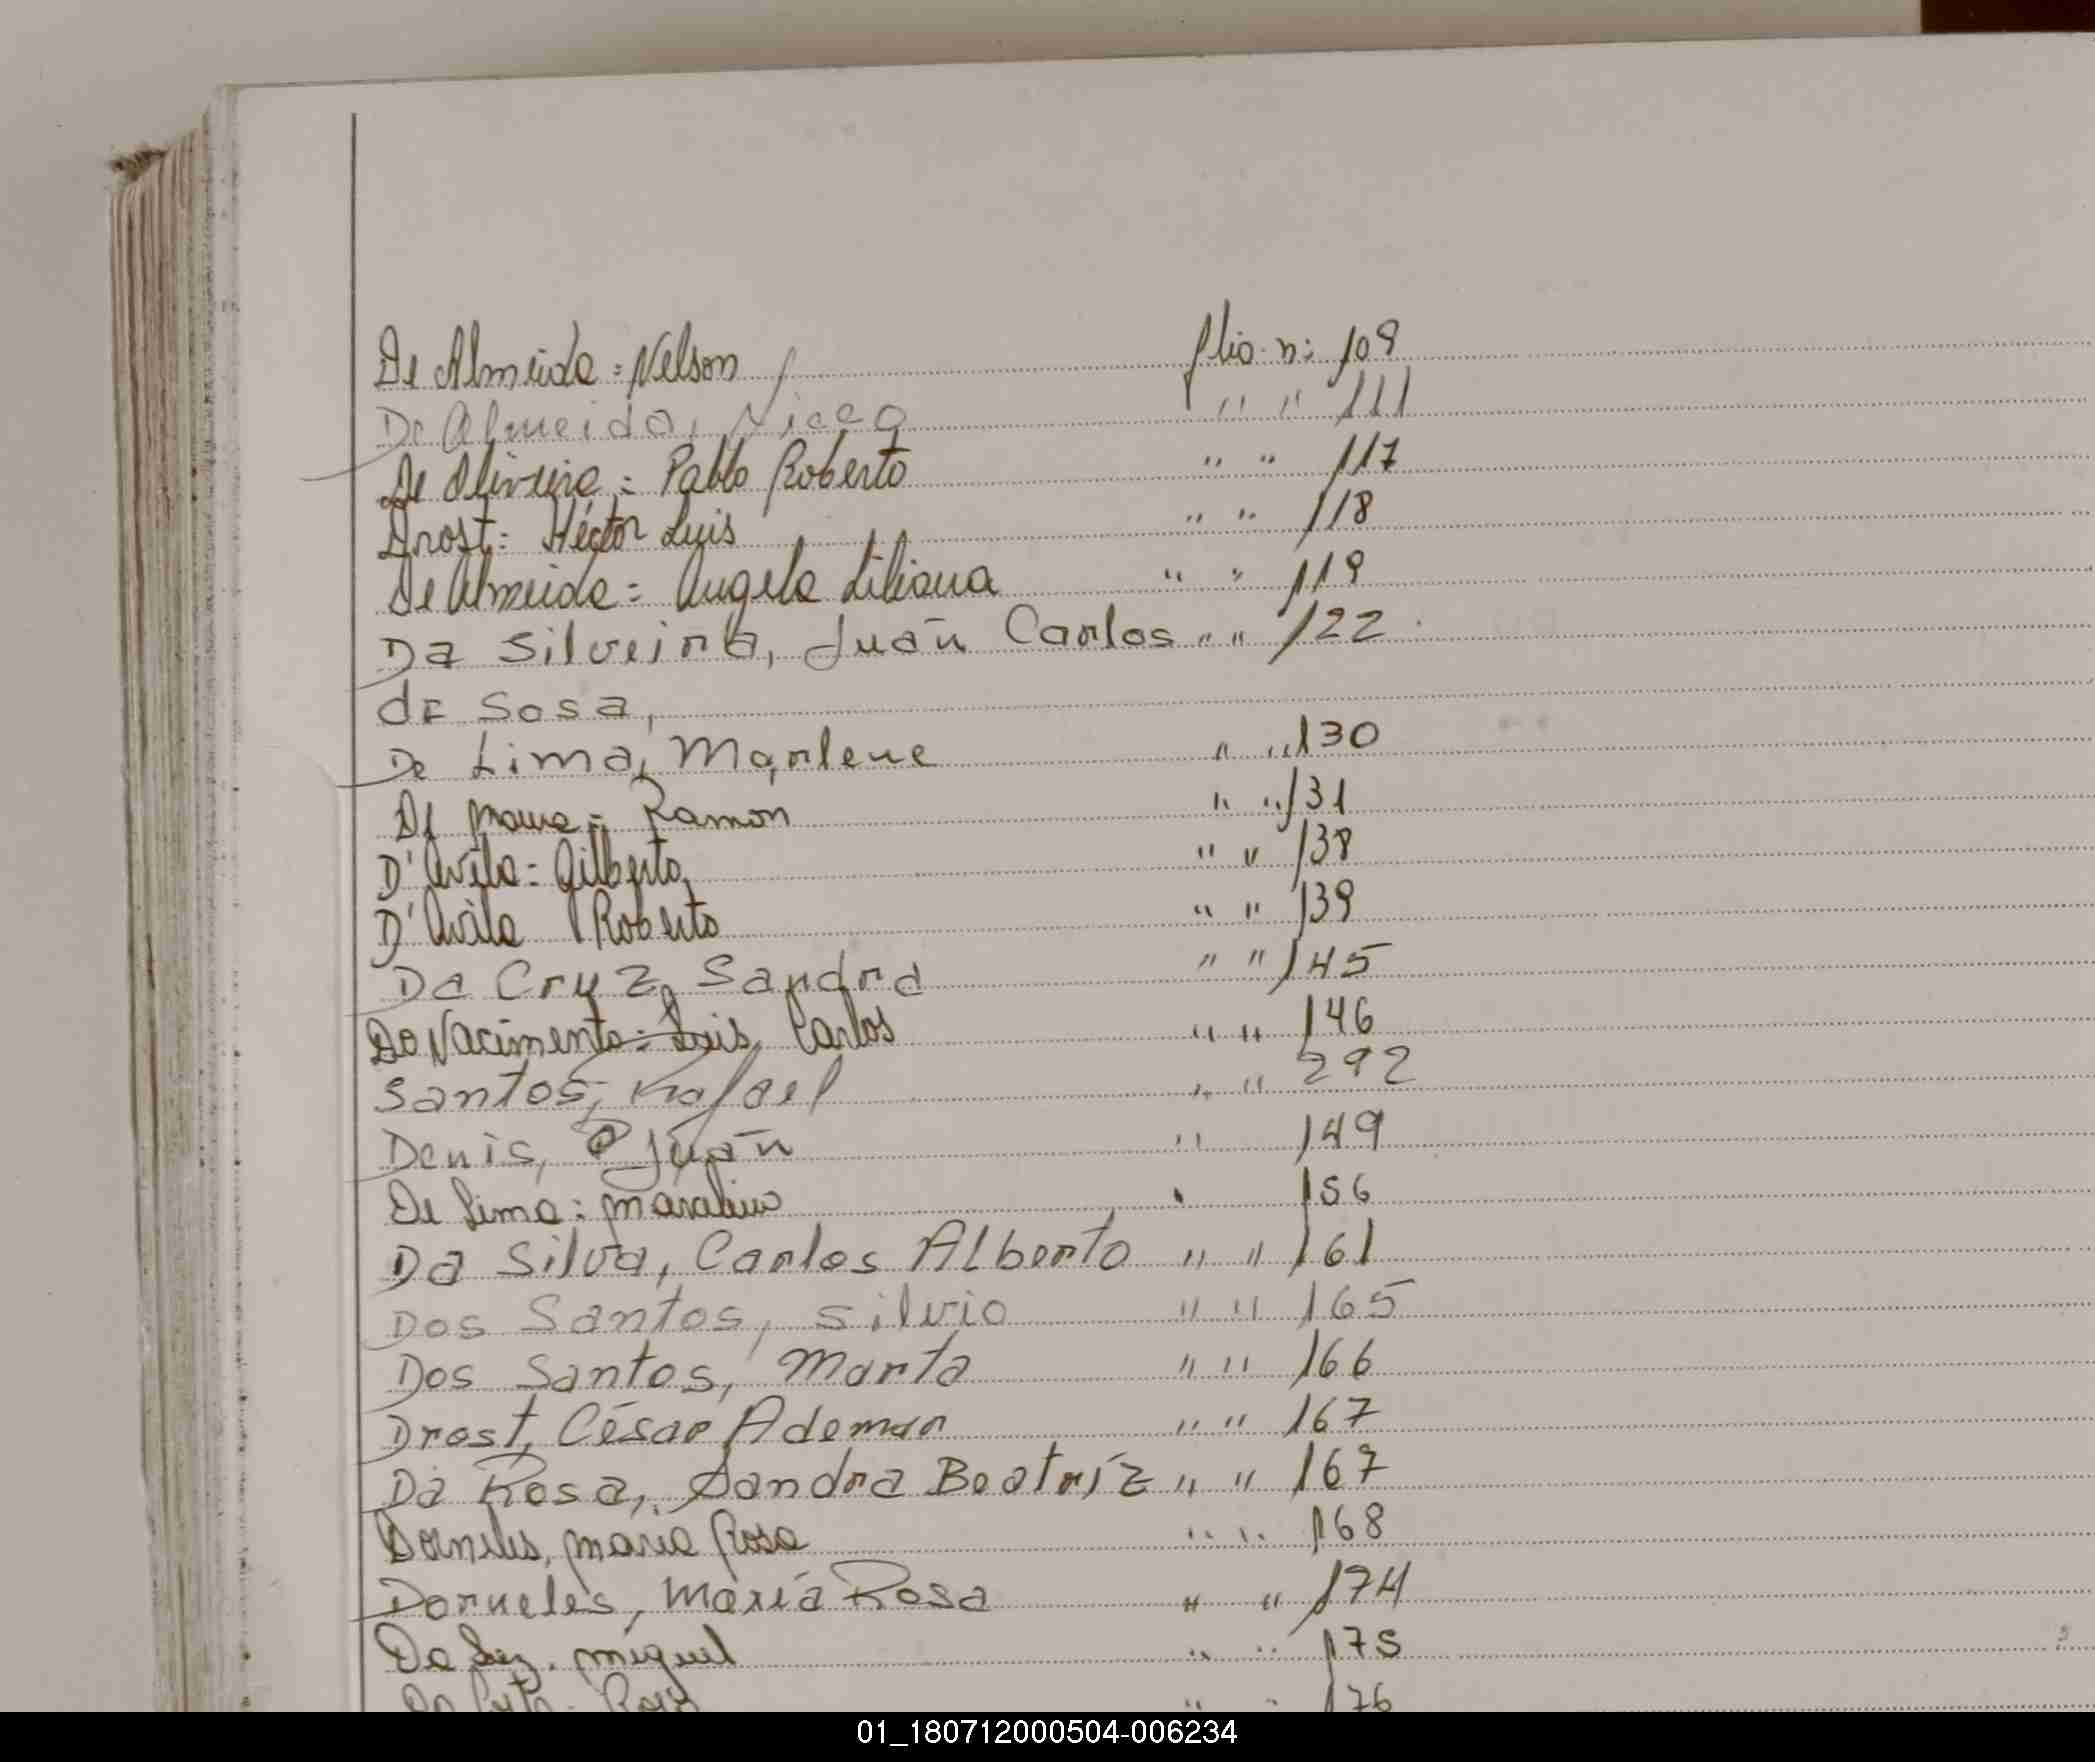 De Almeida = Nelson folio n: 109
De Almeida, Nicea " " 111
De Oliveira = Pablo Roberto " " 117
Drost = Héctor Luis " " 118
De Almeida = Angela Liliana " " 119
Da Silveira, Juan Carlos " " 122
de Sosa,
De Lima, Marlene " " 130
De Ramon " " 131
D'Avila = Gilberto " " 138
D'Avila Roberto " " 139
Da Cruz, Sandra " " 145
Do Nacimento = Luis Carlos " " 146
Santos, Rafael " " 292
Denis, Juan " 149
De Lima = " 156
Da Silva, Carlos Alberto " " 161
Dos Santos, Silvio " " 165
Dos Santos, Marta " " 166
Drost, César Ademar " " 167
Da Rosa, Sandra Beatríz " " 167
Dorneles, maria Rosa " " 168
Dorneles, María Rosa " " 174
Da Luz. miguel " " 175
" " 176
01_180712000504-006234